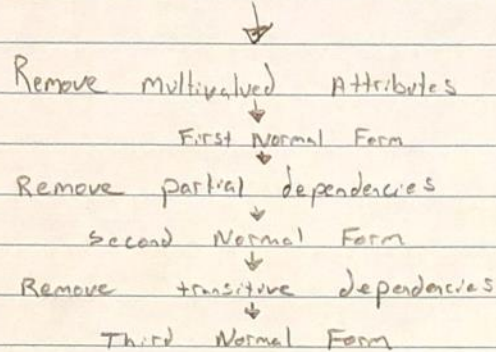 Remove Multivalued Attributes
First Normal Form
Remove partial dependencies
Second Normal Form
Remove transitive dependencies
Third Normal Form